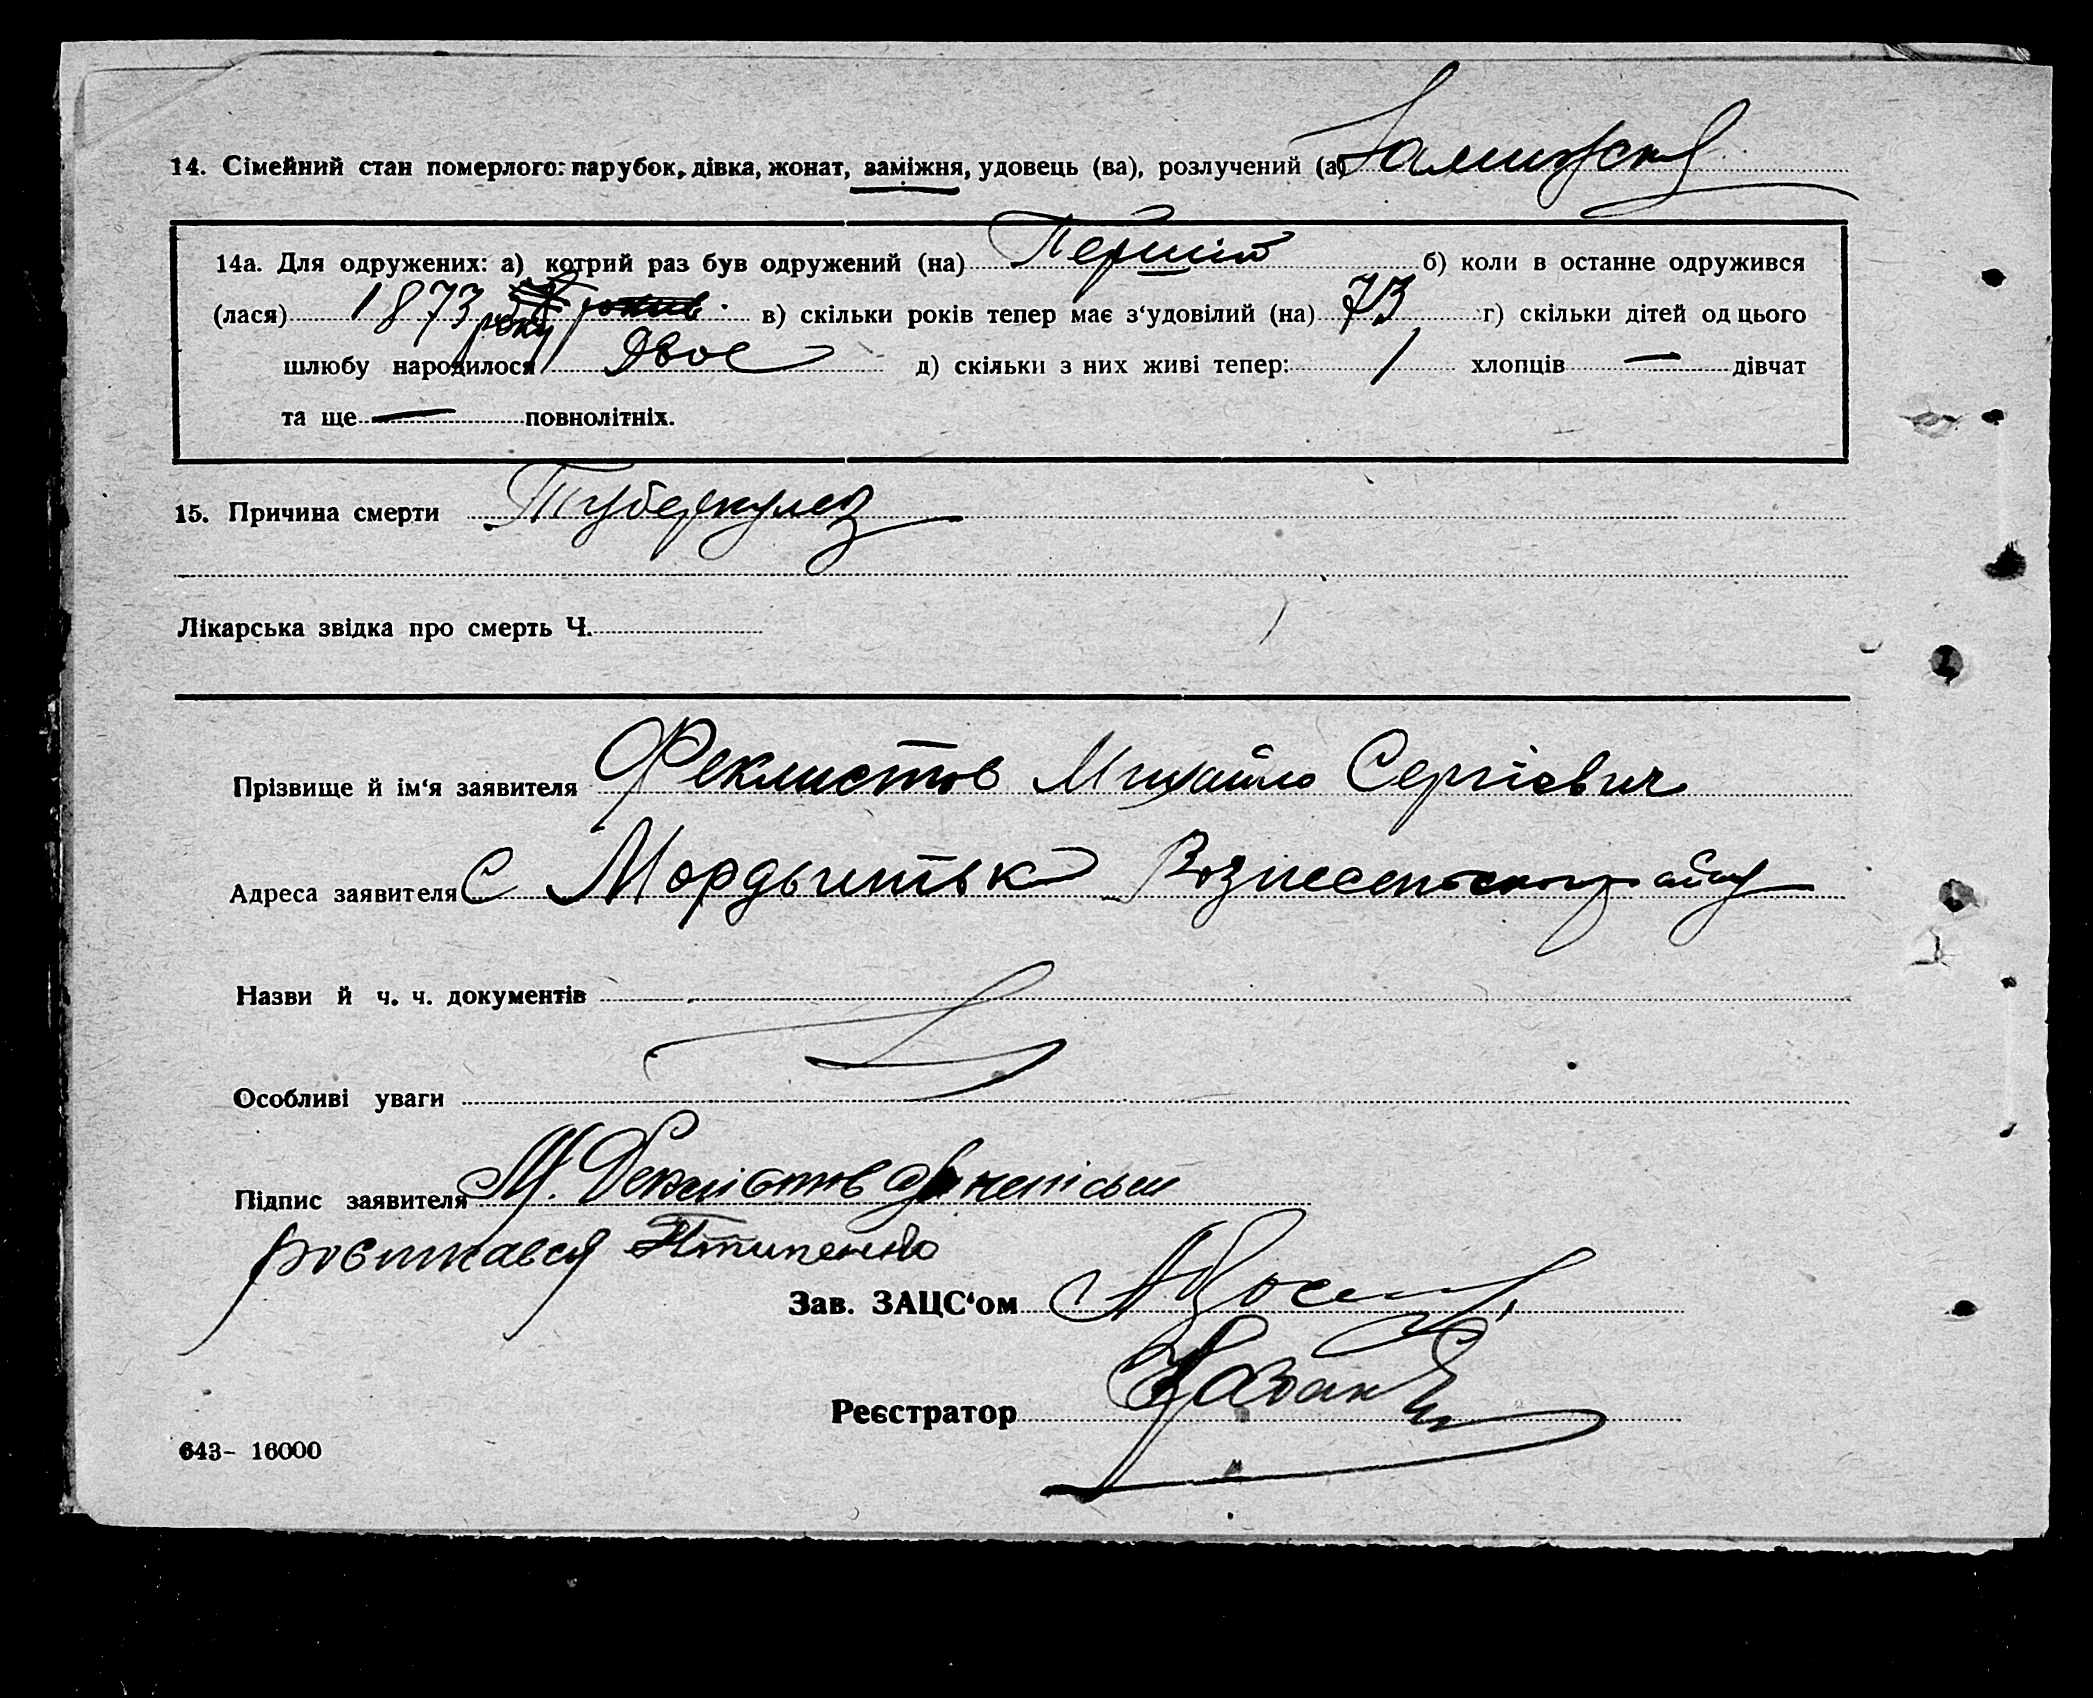 14. Сімейний стан померлого: парубок, дівка, жонат, заміжня, удовець (ва), розлучений (а) Замижня
14а. Для одружених: а) котрий раз був одружений (на) Перший б) коли в останнє одружився
(лася) 1873 року в) скільки років тепер має з‘удовілий (на) 73 г) скільки дітей од цього
шлюбу народилося Двоє д) скільки з них живі тепер: 1 хлопців — дівчат
та ще — повнолітніх.
15. Причина смерти Туберкулез
Лікарська звідка про смерть Ч.
Прізвище й ім‘я заявителя Феклистов Михайло Сергієвич
Адреса заявителя С Вознесенського району
Назви й ч. ч. документів
Особливі уваги
Підпис заявителя М. Феклістов
Зав. ЗАЦС‘ом
Реєстратор
643- 16000